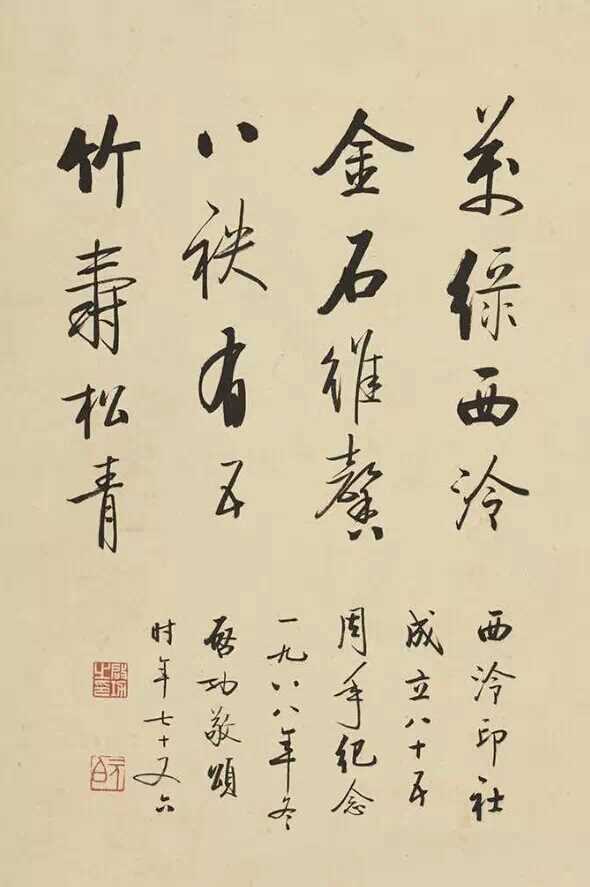 萬緑西泠
金石維馨
八袟有五
竹壽松青
西泠印社
成立八十五
周年紀念
一九八八年冬
啟功敬頌
时年七十又六
啟功之印
元白